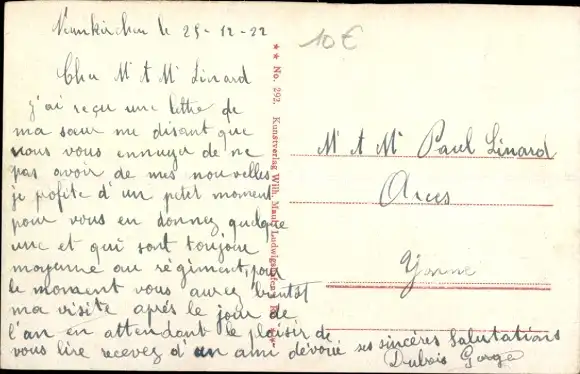 Neunkirchen le 25-12-22
10 €
Cher Mr & Me Linard
j'ai reçu une lettre de
ma sœur me disant que
vous vous ennuyer de ne
pas avoir de mes nouvelles
je pofite d'un petit moment
pour vous en donnez quelque
une et qui sont toujour
moyenne au régiment, pour
le moment vous aurez bientot
ma visite après le jour de
l'an en attendant le plaisir de
vous lire recevez d'un ami dévoué ses sincères Salutations
Dubois Gorge
** No. 292. Kunstverlag Wilh. Mauz, Ludwigshafen
Mr & Me Paul Linard
Arces
Yonne